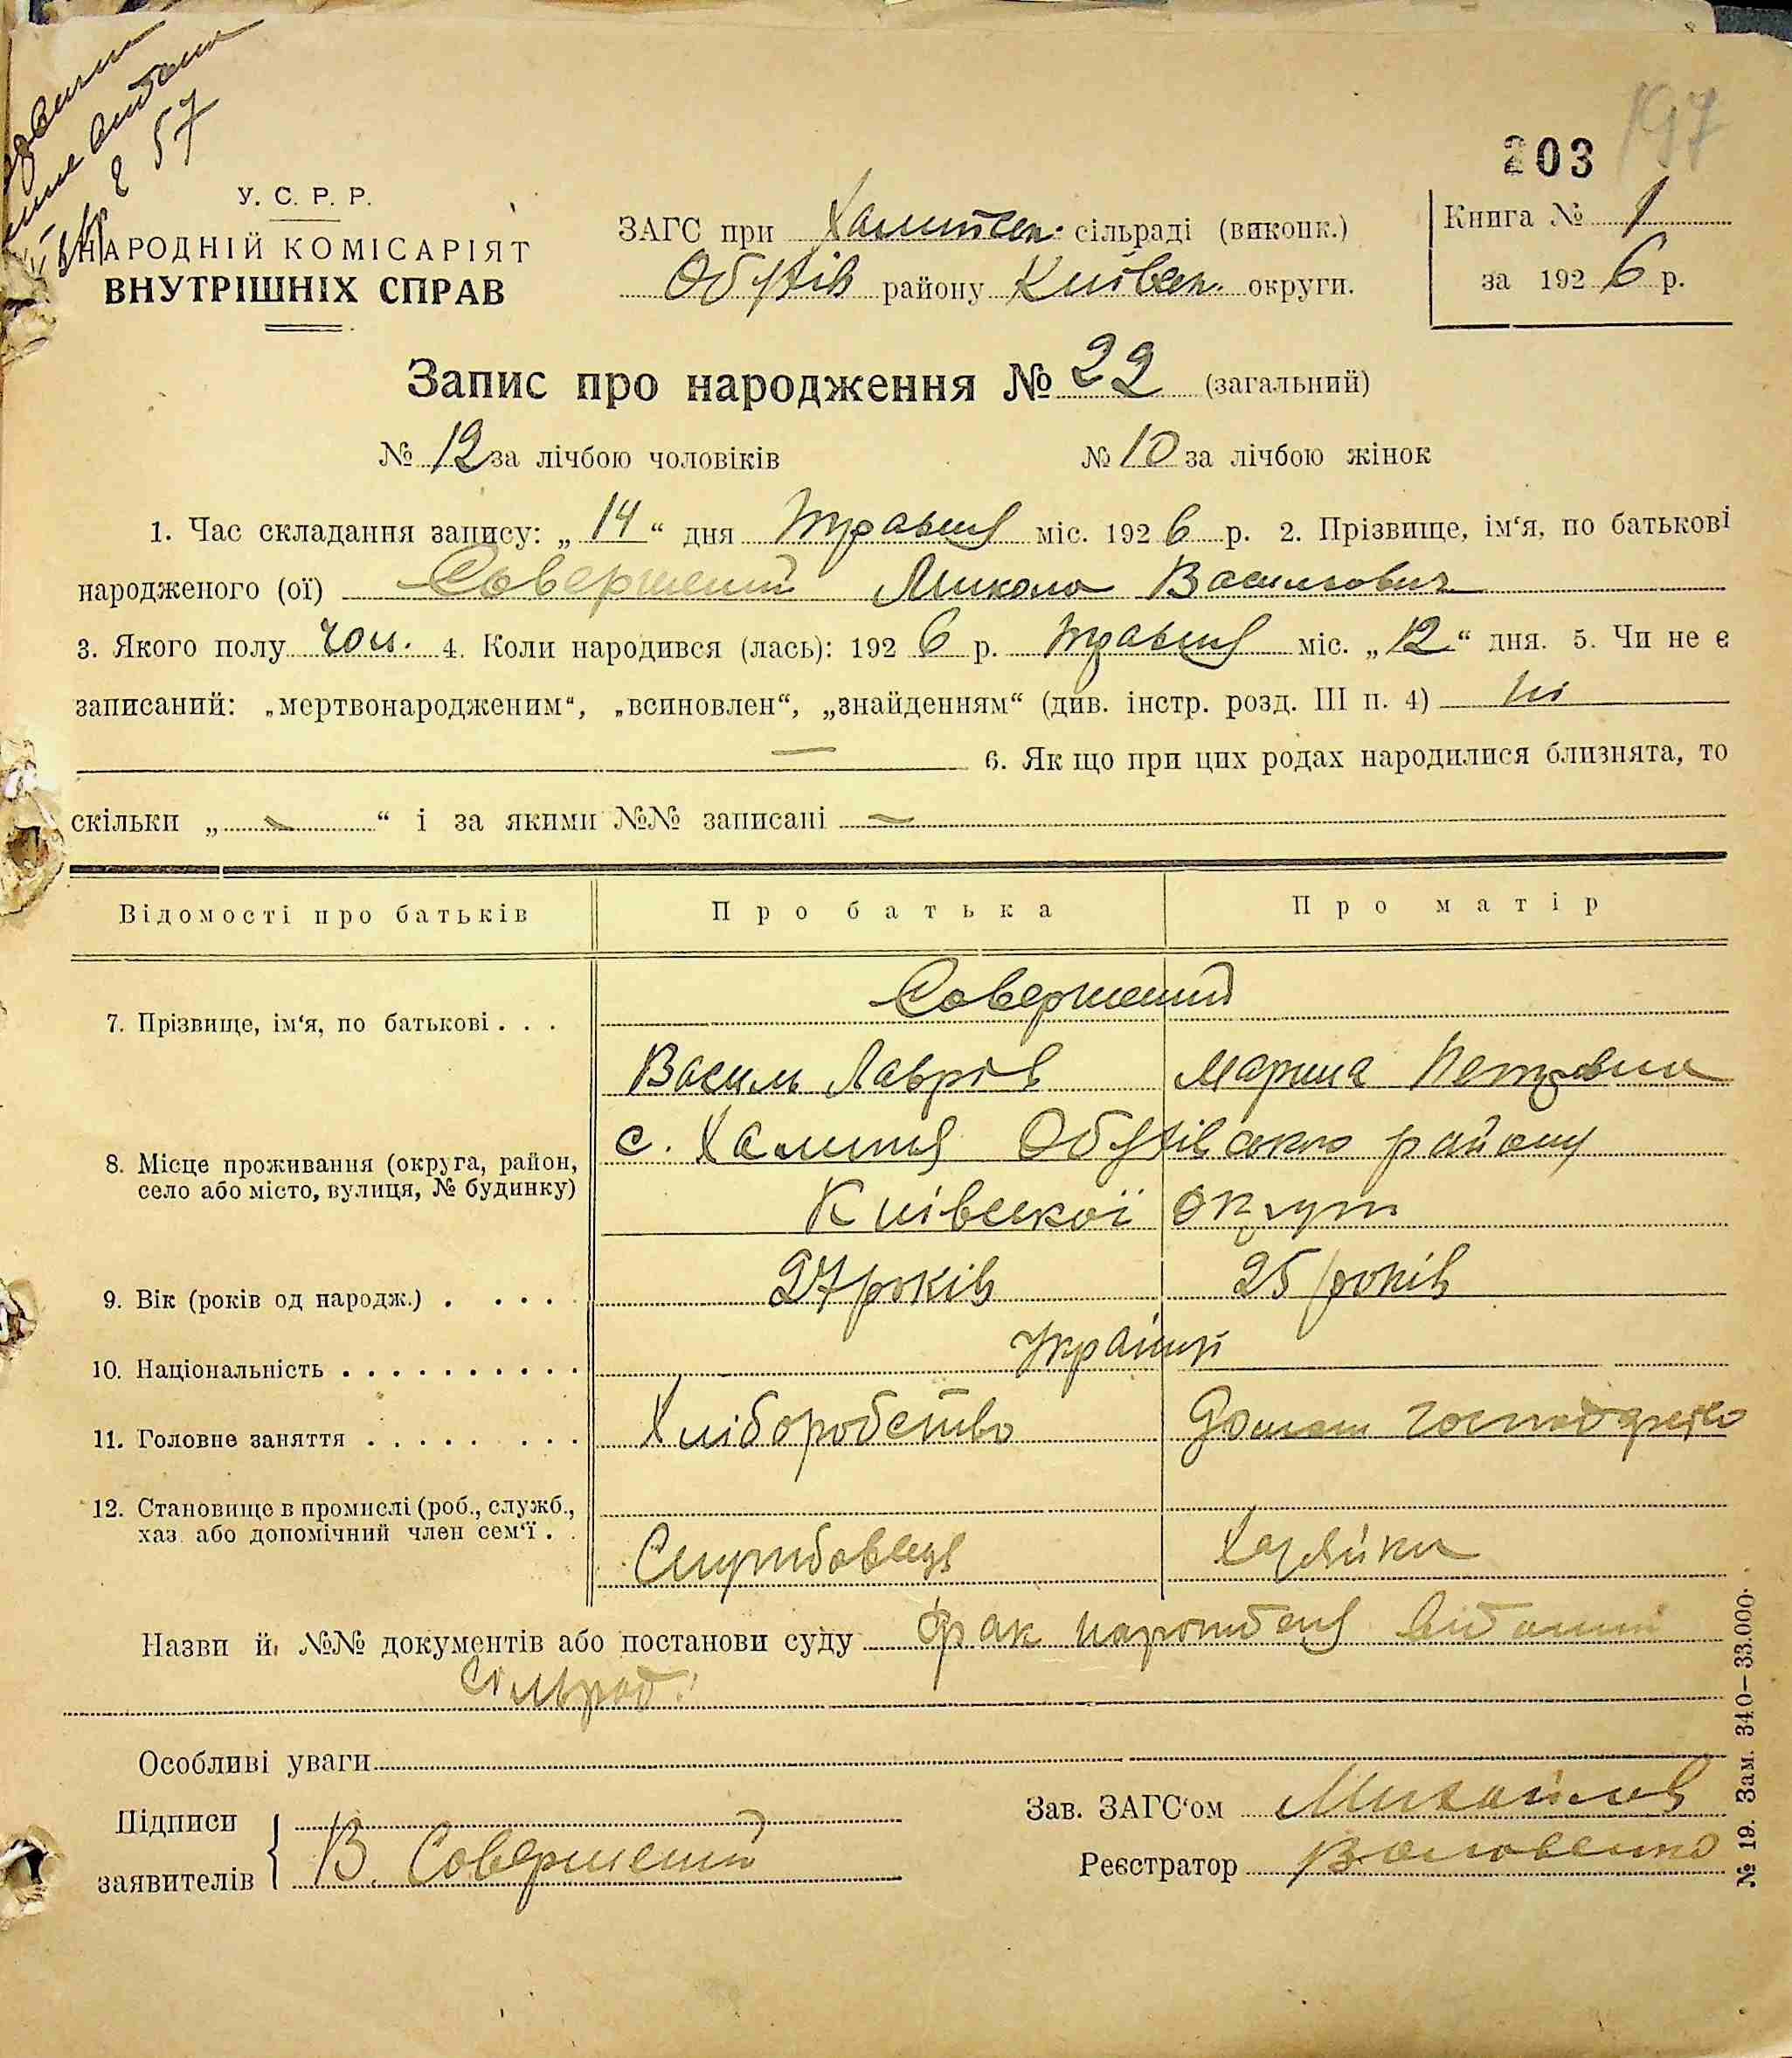 203 197
У. С. Р. Р.
НАРОДНІЙ КОМІСАРІЯТ
ВНУТРІШНІХ СПРАВ
ЗАГС при Халепськ. сільраді (виконк.)
Обухів району Київськ. округи.
Книга № 1
за 1926 р.
Запис про народження № 22 (загальний)
№ 12 за лічбою чоловіків № 10 за лічбою жінок
1. Час складання запису: „ 14 “ дня травня міс. 1926 р. 2. Прізвище, ім‘я, по батькові
народженого (ої) Совершений Микола Васильович
3. Якого полу чол. 4. Коли народився (лась): 1926 р. травня міс. „12“ дня. 5. Чи не є
записаний: „мертвонародженим“, „всиновлен“, „знайденням“ (див. інстр. розд. III п. 4) ні
— 6. Як що при цих родах народилися близнята, то
скільки „ — “ і за якими №№ записані —
Відомості про батьків Про батька Про матір
Совершений
7. Прізвище, ім‘я, по батькові . . .
Василь Лаврів Марина Петровна
с. Обухівського району
8. Місце проживання (округа, район,
село або місто, вулиця, № будинку)
Київської округи
9. Вік (років од народж.) . . . . . 27 років 25 років
10. Національність . . . . . . . . . . Україн
11. Головне заняття . . . . . . . . Хліборобство Домашн господарство
12. Становище в промислі (роб., служб.,
хаз. або допомічний член сем‘ї . .
Службовець Хазяйка
Назви й №№ документів або постанови суду фак народженя
сільрад.
Особливі уваги
Підписи
заявителів { В. Совершений
Зав. ЗАГС‘ом Михайлов
Реєстратор
№ 19. Зам. 340—33.000.